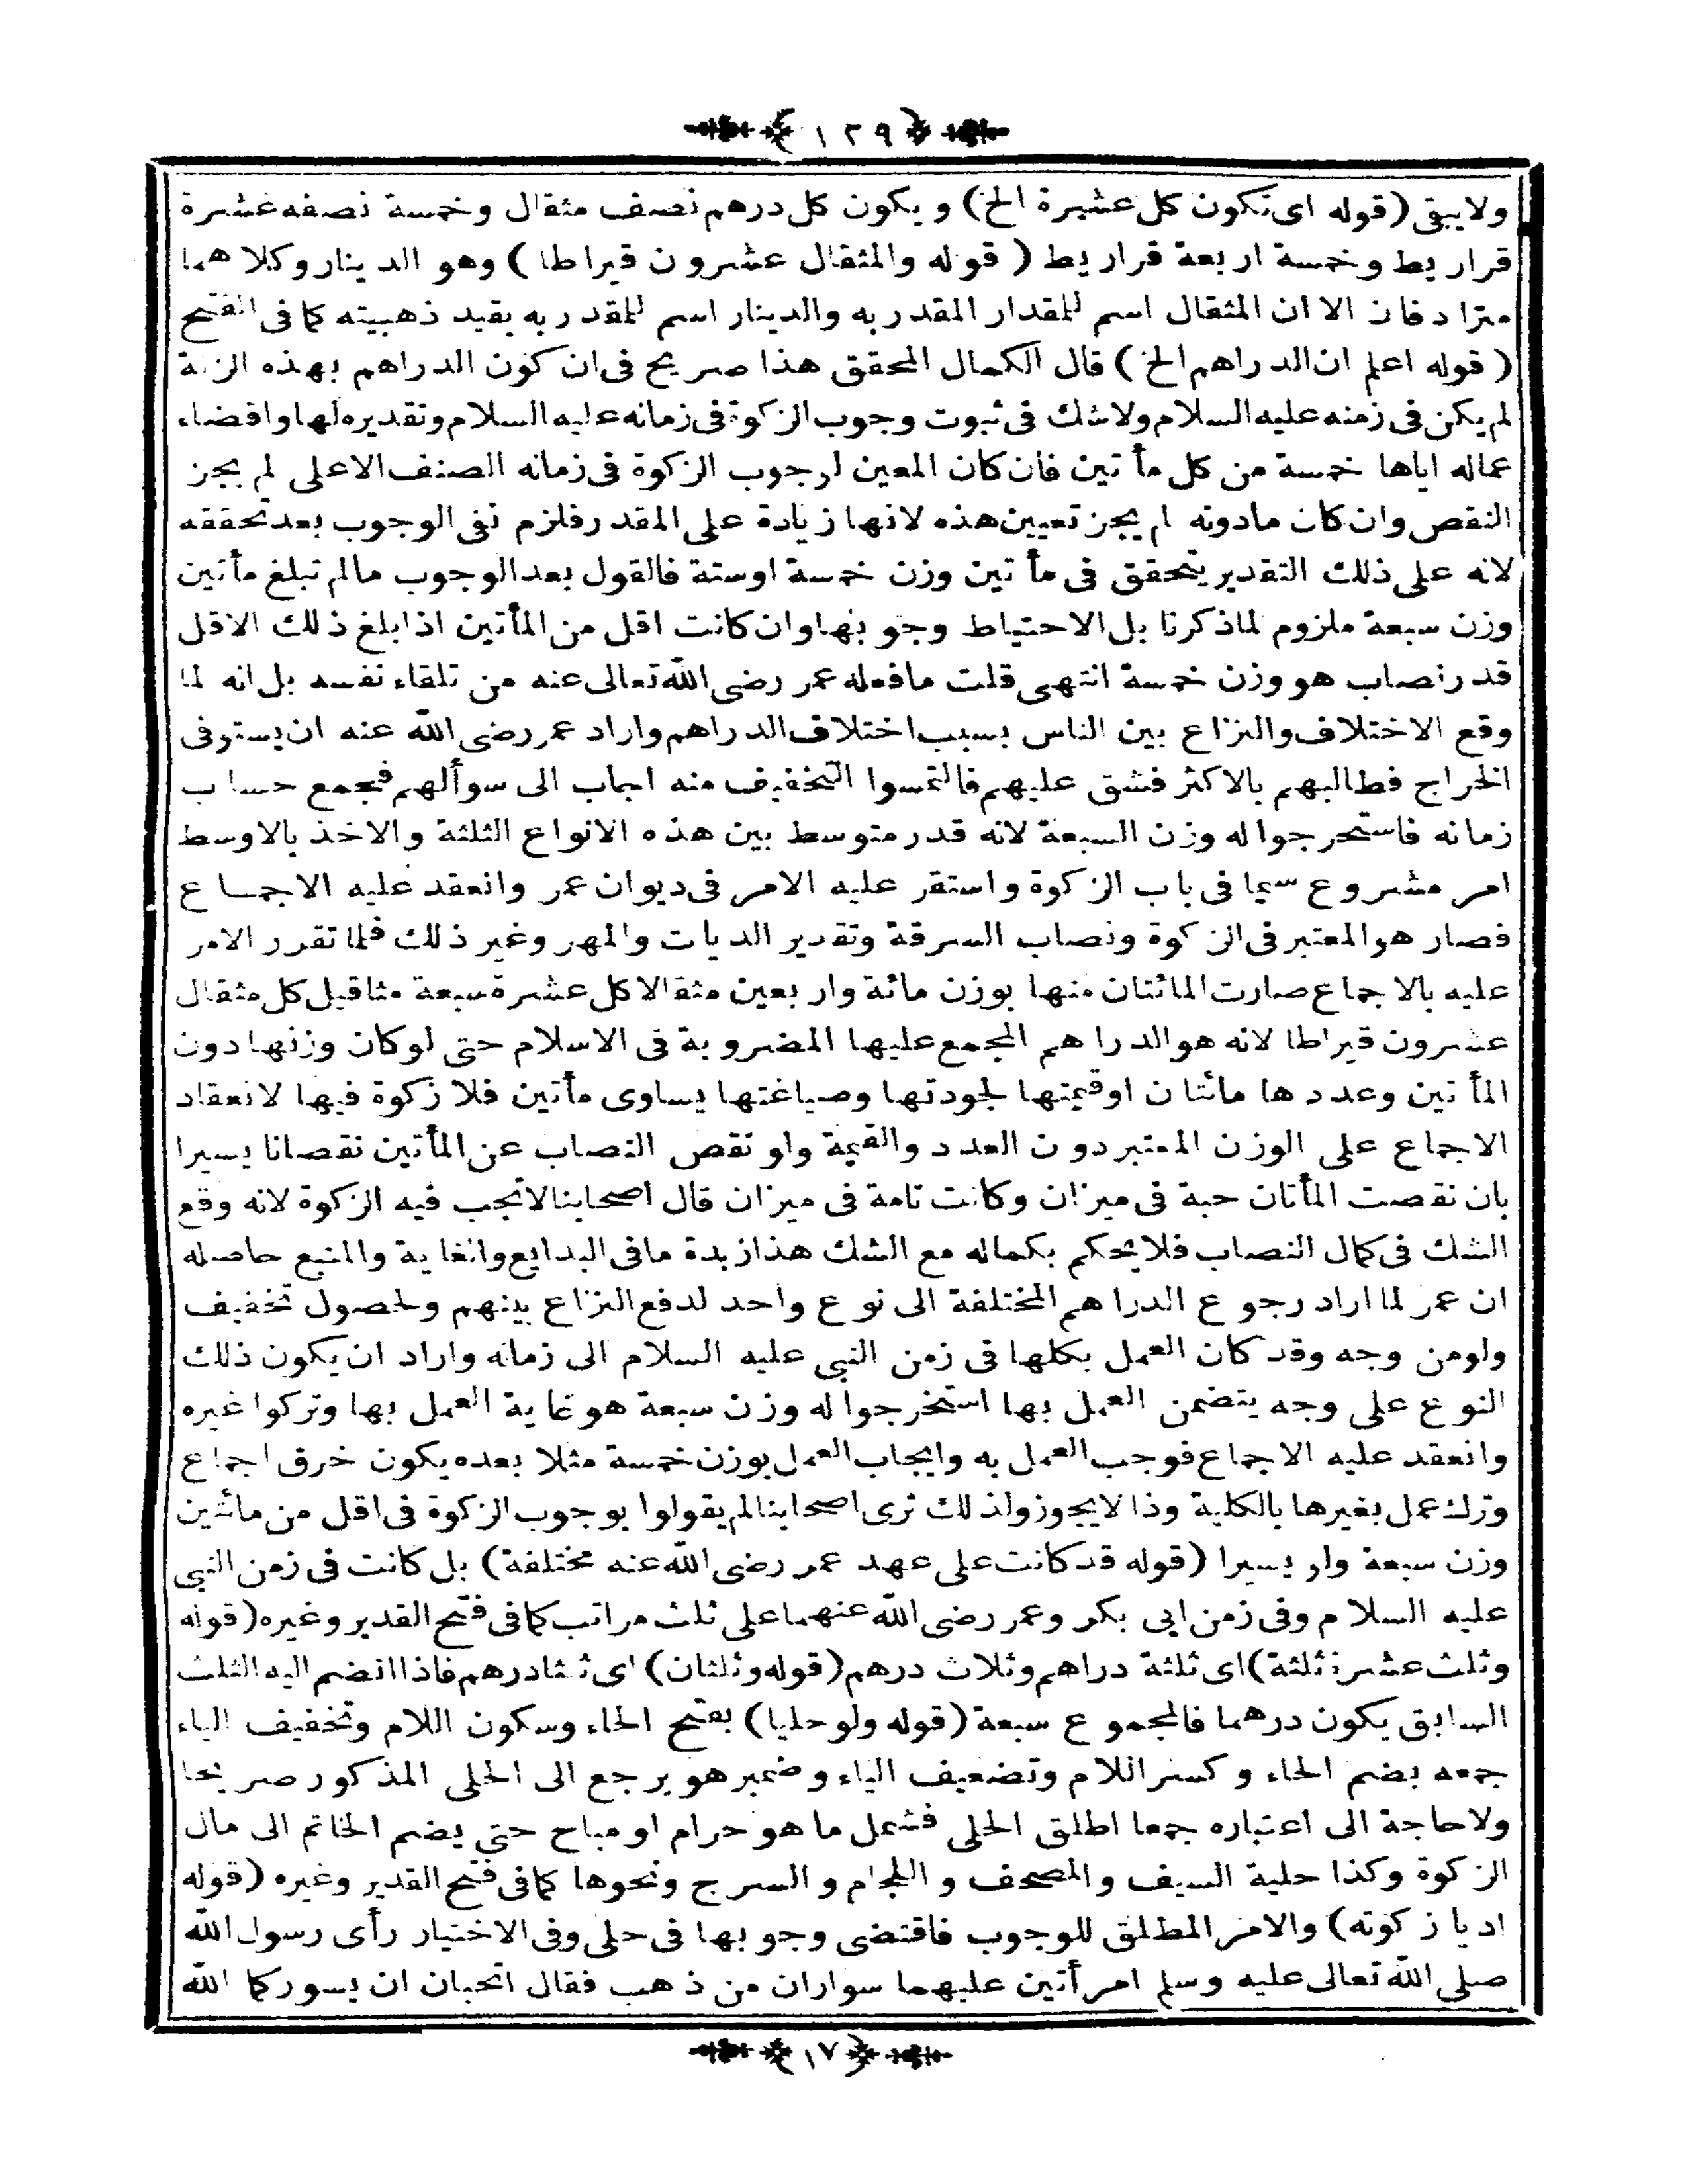 ﴿ ١٢٩ ﴾
ولايبقى (قوله اى تكون كل عشيرة الخ) ويكون كل درهم نصف مثقال وخمسة نصفه عشرة
قراريط وخمسة اربعة قراريط (قوله والمثقال عشرون قيراطا) وهو الدينار وكلاهما
مترادفان الا ان المثقال اسم للمقدار المقدر به والدينار اسم للمقدر به بقيد ذهبيته كما فى الفتح
(قوله اعلم ان الدراهم الخ) قال الكمال المحقق هذا صريح فى ان كون الدراهم بهذه الزنة
لم يكن فى زمنه عليه السلام ولاشك فى ثبوت وجوب الزكوة فى زمانه عليه السلام وتقديره لها واقضاء
عماله اياها خمسة من كل مأتين فان كان المعين لوجوب الزكوة فى زمانه الصنف الاعلى لم يجز
النقص وان كان مادونه لم يجز تعيين هذه لانها زيادة على المقدر فلزم نفى الوجوب بعد تحققه
لانه على ذلك التقدير يتحقق فى مأتين وزن خمسة اوستة فالقول بعد الوجوب مالم تبلغ مأتين
وزن سبعة ملزوم لماذكرنا بل الاحتياط وجوبها وان كانت اقل من المأتين اذا بلغ ذلك الاقل
قدر نصاب هو وزن خمسة انتهى قلت مافعله عمر رضى الله تعالى عنه من تلقاء نفسه بل انه لما
وقع الاختلاف والنزاع بين الناس بسبب اختلاف الدراهم واراد عمر رضى الله عنه ان يستوفى
الخراج فطالبهم بالاكثر فشق عليهم فالتمسوا التخفيف منه اجاب الى سوألهم فجمع حساب
زمانه فاستخرجوا له وزن السبعة لانه قدر متوسط بين هذه الانواع الثلثة والاخذ بالاوسط
امر مشروع سيما فى باب الزكوة واستقر عليه الامر فى ديوان عمر وانعقد عليه الاجماع
فصار هو المعتبر فى الزكوة ونصاب السرقة وتقدير الديات والمهر وغير ذلك فلما تقرر الامر
عليه بالاجماع صارت المائتان منها بوزن مائة واربعين مثقالا كل عشرة سبعة مثاقيل كل مثقال
عشرون قيراطا لانه هو الدراهم المجمع عليها المضروبة فى الاسلام حتى لوكان وزنها دون
المأتين وعددها مائتان اوقيمتها لجودتها وصياغتها يساوى مأتين فلا زكوة فيها لانعقاد
الاجماع على الوزن المعتبر دون العدد والقيمة ولو نقص النصاب عن المأتين نقصانا يسيرا
بان نقصت المأتان حبة فى ميزان وكانت تامة فى ميزان قال اصحابنا لاتجب فيه الزكوة لانه وقع
الشك فى كمال النصاب فلايحكم بكماله مع الشك هذا زبدة مافى البدايع والغاية والمنبع حاصله
ان عمر لما اراد رجوع الدراهم المختلفة الى نوع واحد لدفع النزاع بينهم ولحصول تخفيف
ولومن وجه وقد كان العمل بكلها فى زمن النبى عليه السلام الى زمانه واراد ان يكون ذلك
النوع على وجه يتضمن العمل بها استخرجوا له وزن سبعة هو غاية العمل بها وتركوا غيره
وانعقد عليه الاجماع فوجب العمل به وايجاب العمل بوزن خمسة مثلا بعده يكون خرق اجماع
وترك عمل بغيرها بالكلية وذا لايجوز ولذلك ترى اصحابنا لم يقولوا بوجوب الزكوة فى اقل من مائتين
وزن سبعة ولو يسيرا (قوله قد كانت على عهد عمر رضى الله عنه مختلفة) بل كانت فى زمن النبى
عليه السلام وفى زمن ابى بكر وعمر رضى الله عنهما على ثلث مراتب كما فى فتح القدير وغيره (قوله
وثلث عشرة ثلثة) اى ثلثة دراهم وثلاث درهم (قوله وثلثان) اى ثلثا درهم فاذا انضم اليه الثلث
السابق يكون درهما فالمجموع سبعة (قوله ولو حليا) بفتح الحاء وسكون اللام وتخفيف الياء
جمعه بضم الحاء وكسر اللام وتضعيف الياء وضمير هو يرجع الى الحلى المذكور صريحا
ولاحاجة الى اعتباره جمعا اطلق الحلى فشمل ما هو حرام او مباح حتى يضم الخاتم الى مال
الزكوة وكذا حلية السيف والمصحف واللجام والسرج ونحوها كما فى فتح القدير وغيره (قوله
اديا زكوته) والامر المطلق للوجوب فاقتضى وجوبها فى حلى وفى الاختيار رأى رسول الله
صلى الله تعالى عليه وسلم امرأتين عليهما سواران من ذهب فقال اتحبان ان يسوركما الله
﴿ ١٧ ﴾